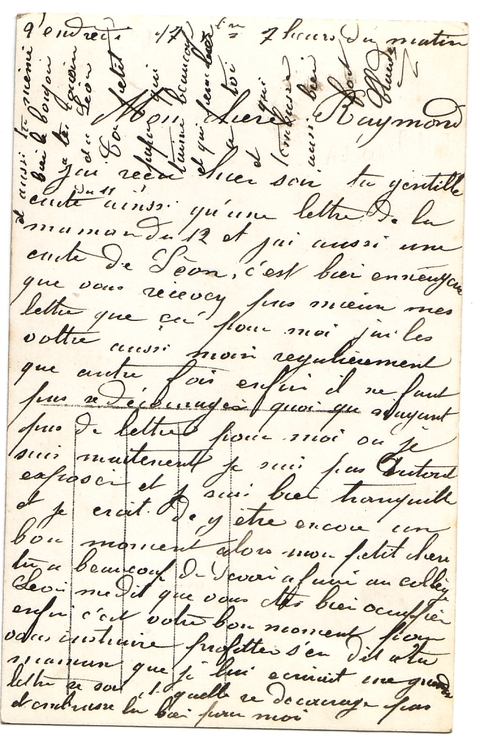 Vendredi 17 7 heures du matin
Mon cher Raymond
j'ai recu hier soir ta gentille
carte du 11 ainssi qu'une lettre de la
maman du 12 et j'ai aussi une
carte de Léon, c'est bien ennuyeu
que vous recevez pas mieux mes
lettre que ça pour moi j'ai les
vottre aussi moin regulièrement
que autre fois enfin il ne faut
pas se découragés quoi que n'ayant
pas de lettre pour moi ou je
suis maitenent je suis pas
exposer et je suis bien tranquille
et je croit de y être encore un
bon moment alors mon petit cher
tu a beaucoup de devoir a faire au college
Léon me dit que vous êtes bien occupier
enfin c'est votre bon moment pour
vous instruire profitter s'en dit a ta
maman que je lui ecrirait une grande
lettre ce soir et quelle se decourage pas
et embrasse la bien pour moi
et aussi la mémé
bien le bonjour
a ton cousin
Léon
Ton petit
papa qui
t'aime beaucoup
et qui pense bien
a toi
et qui
t'embrasse
aussi bien
fort